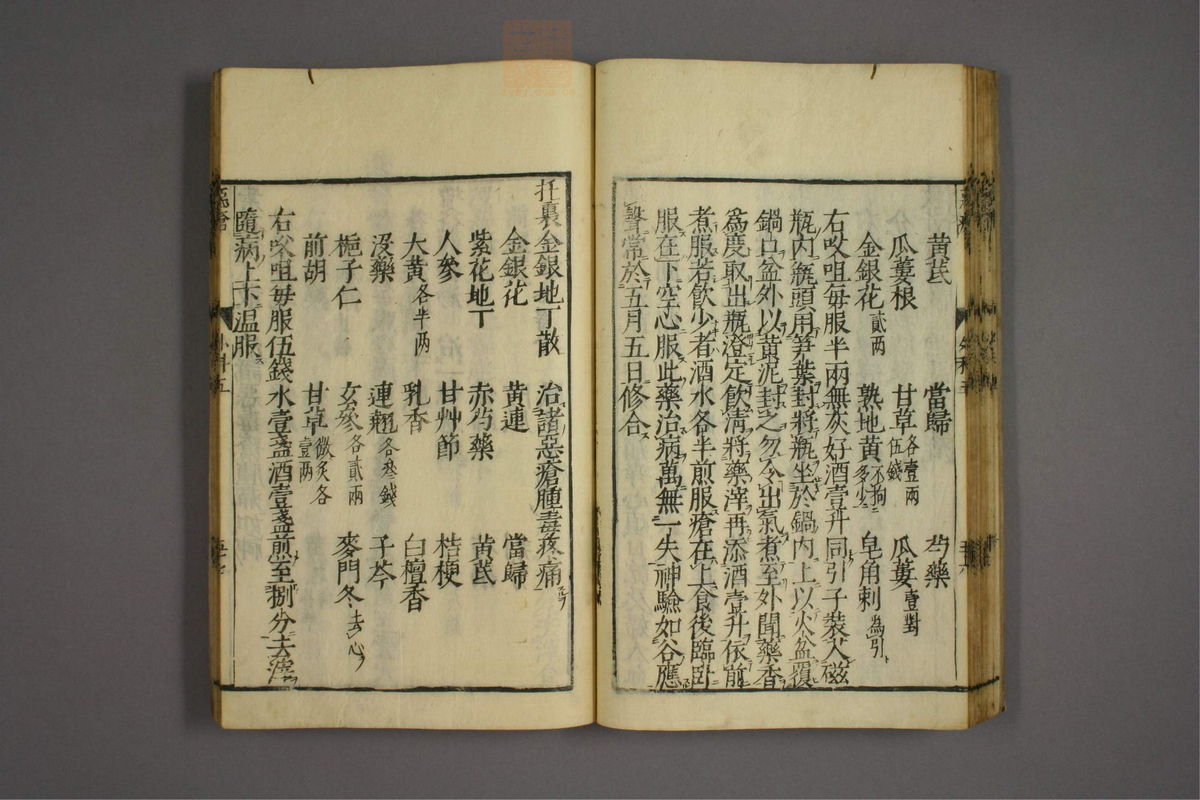 黃芪 當歸 芍藥
瓜蔞根 甘草各壹兩伍錢 瓜蔞壹對
金銀花貳兩 熟地黃不拘多少 皂角刺為引
右㕮咀每服半兩無灰好酒壹升同引子裝入磁
瓶內瓶頭用笋葉封將瓶坐於鍋內上以火盆覆
鍋口盆外以黃泥封之勿令出氣煮至外聞藥香
為度取出瓶澄定飲清將藥滓再添酒壹升依前
煮服若飲少者酒水各半煎服瘡在上食後臨卧
服在下空心服此藥治病萬無一失神驗如谷應
聲常於五月五日修合
托裏金銀地丁散 治諸惡瘡腫毒疼痛
金銀花 黃連 當歸
紫花地丁 赤芍藥 黃芪
人參 甘艸節 桔梗
大黃各半兩 乳香 白檀香
沒藥 連翹各叁錢 子芩
梔子仁 玄參各貳兩 麥門冬去心
前胡 甘草微炙各壹兩
右㕮咀每服伍錢水壹盞酒壹盞煎至捌分去滓
隨病上下溫服